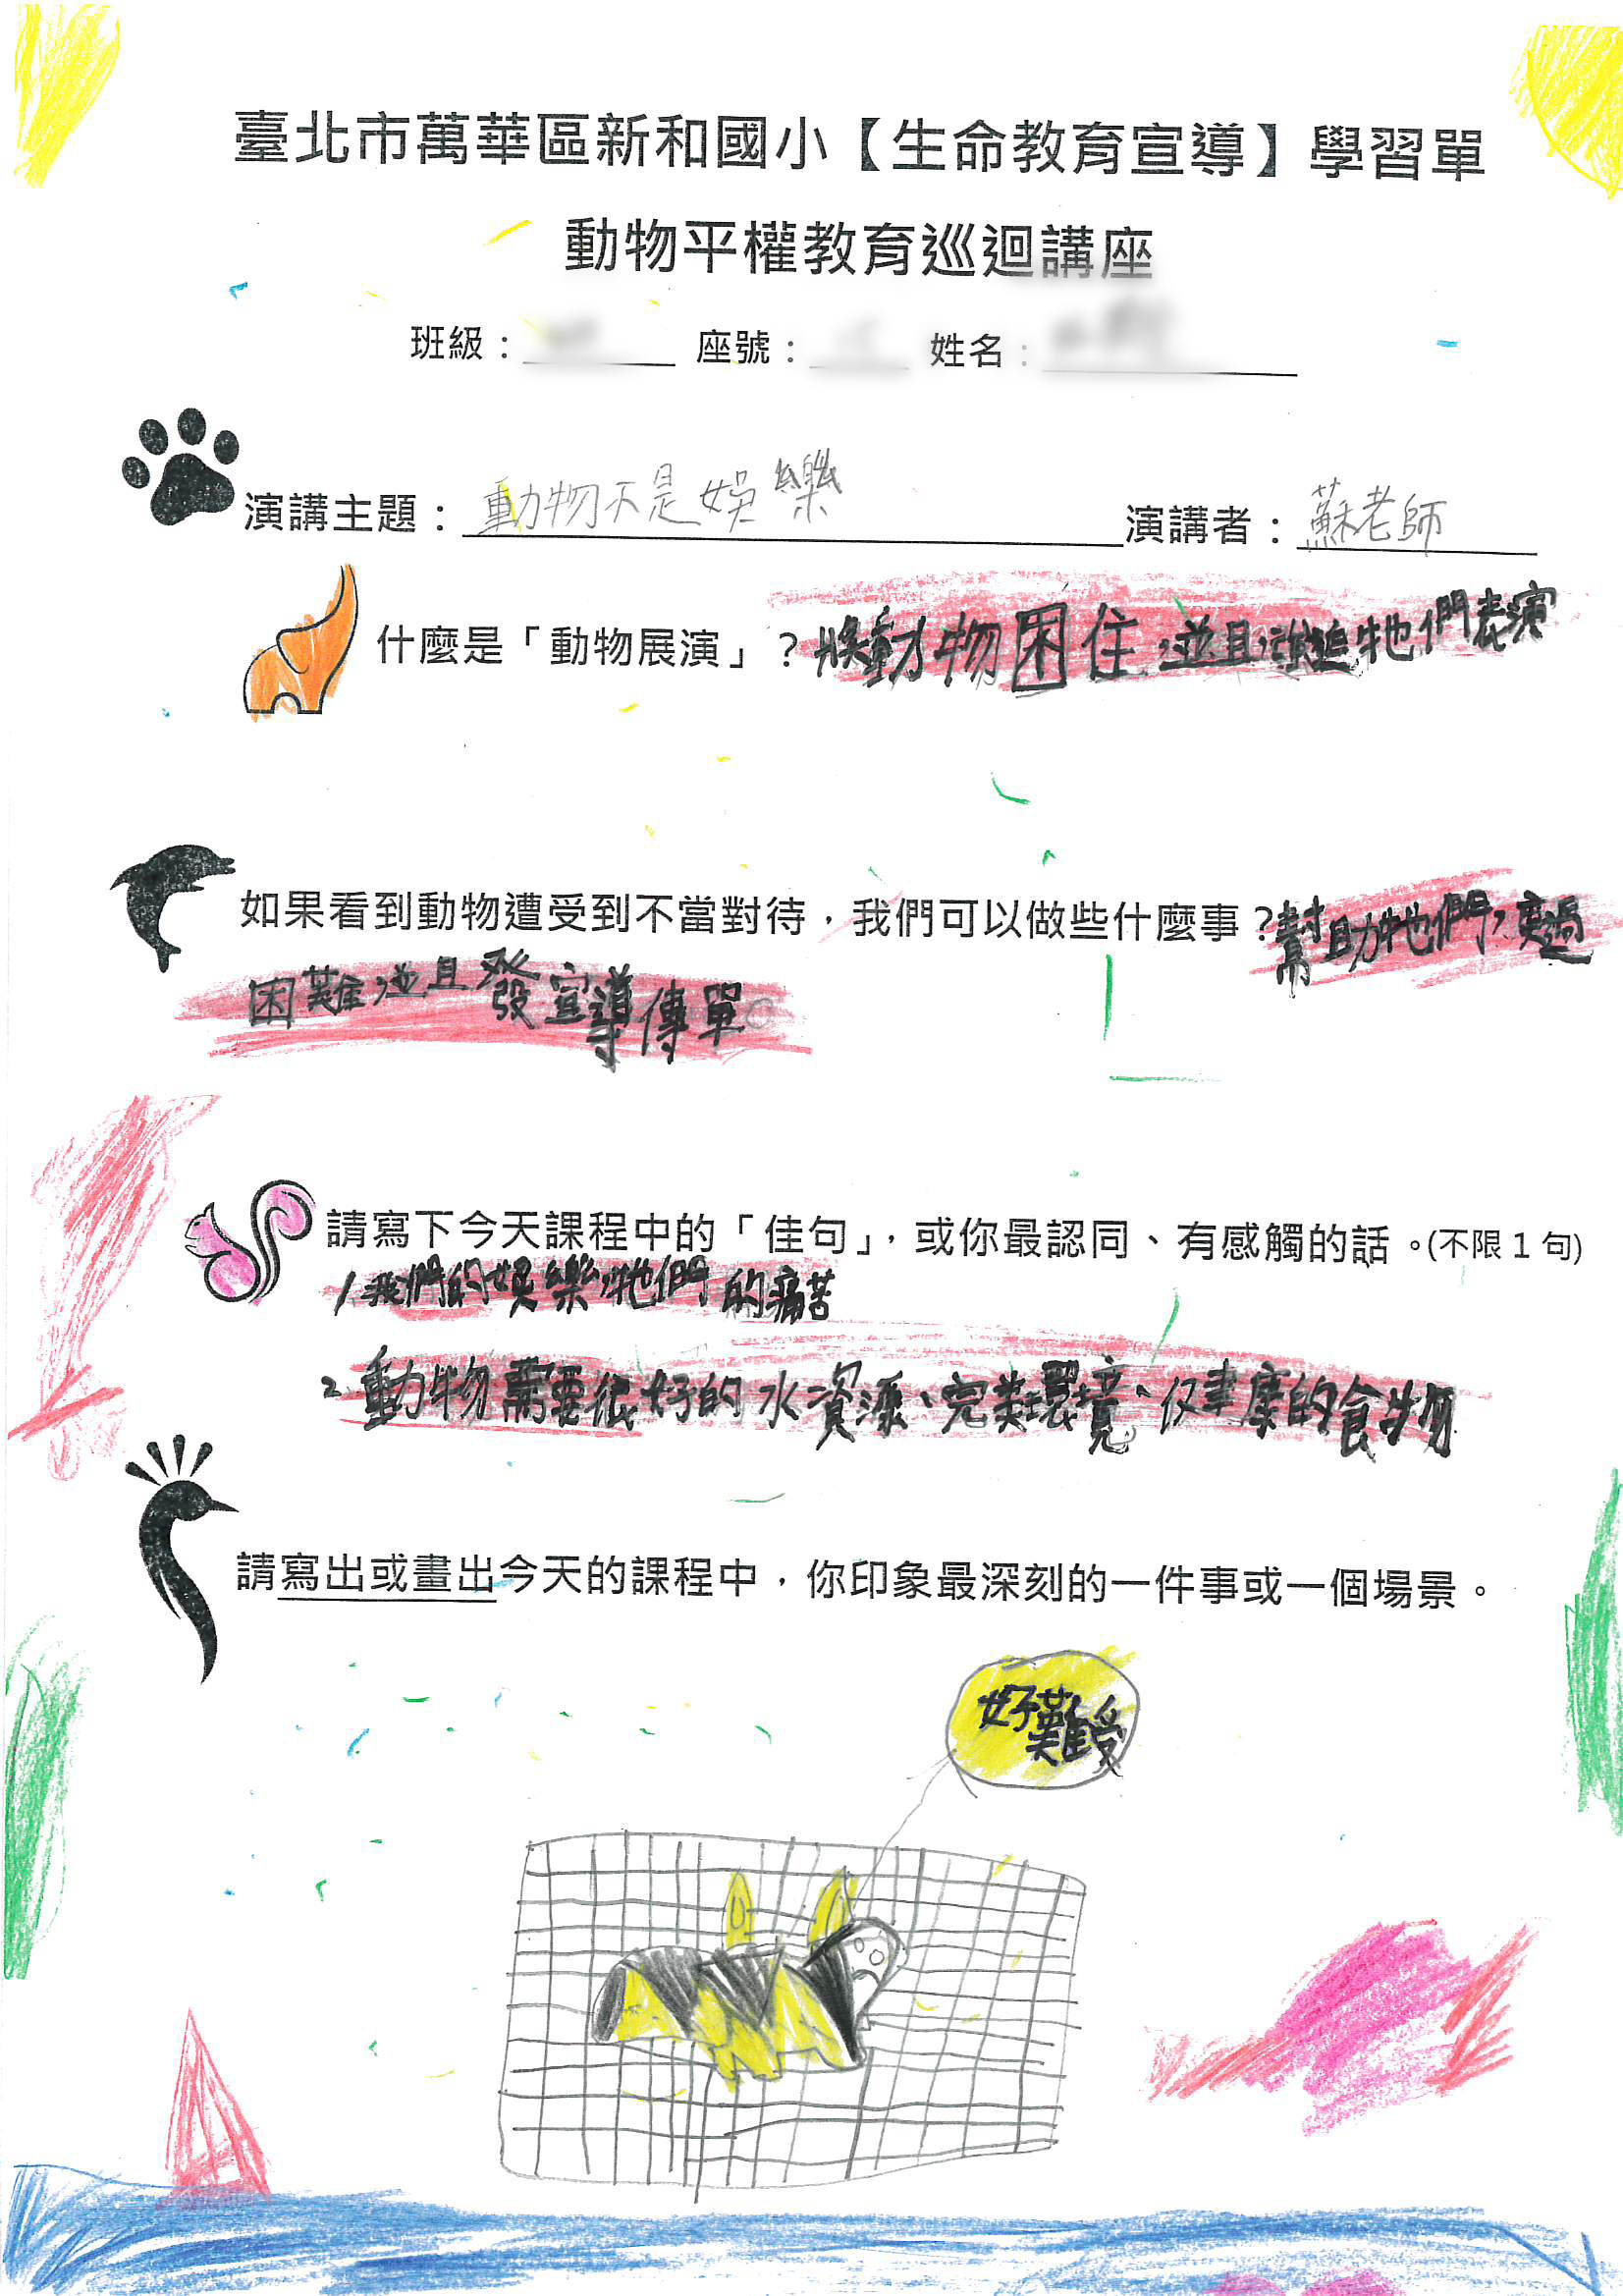 臺北市萬華區新和國小【生命教育宣導】學習單
動物平權教育巡迴講座
班級： 座號： 姓名：
演講主題：動物不是娛樂 演講者：蘇老師
什麼是「動物展演」？將動物困住並且強迫牠們表演
如果看到動物遭受到不當對待，我們可以做些什麼事？幫助牠們度過
困難並且發宣導傳單。
請寫下今天課程中的「佳句」，或你最認同、有感觸的話。(不限1句)
1.我們的娛樂牠們的痛苦
2.動物需要很好的水資源、完美環境、健康的食物
請寫出或畫出今天的課程中，你印象最深刻的一件事或一個場景。
好難受